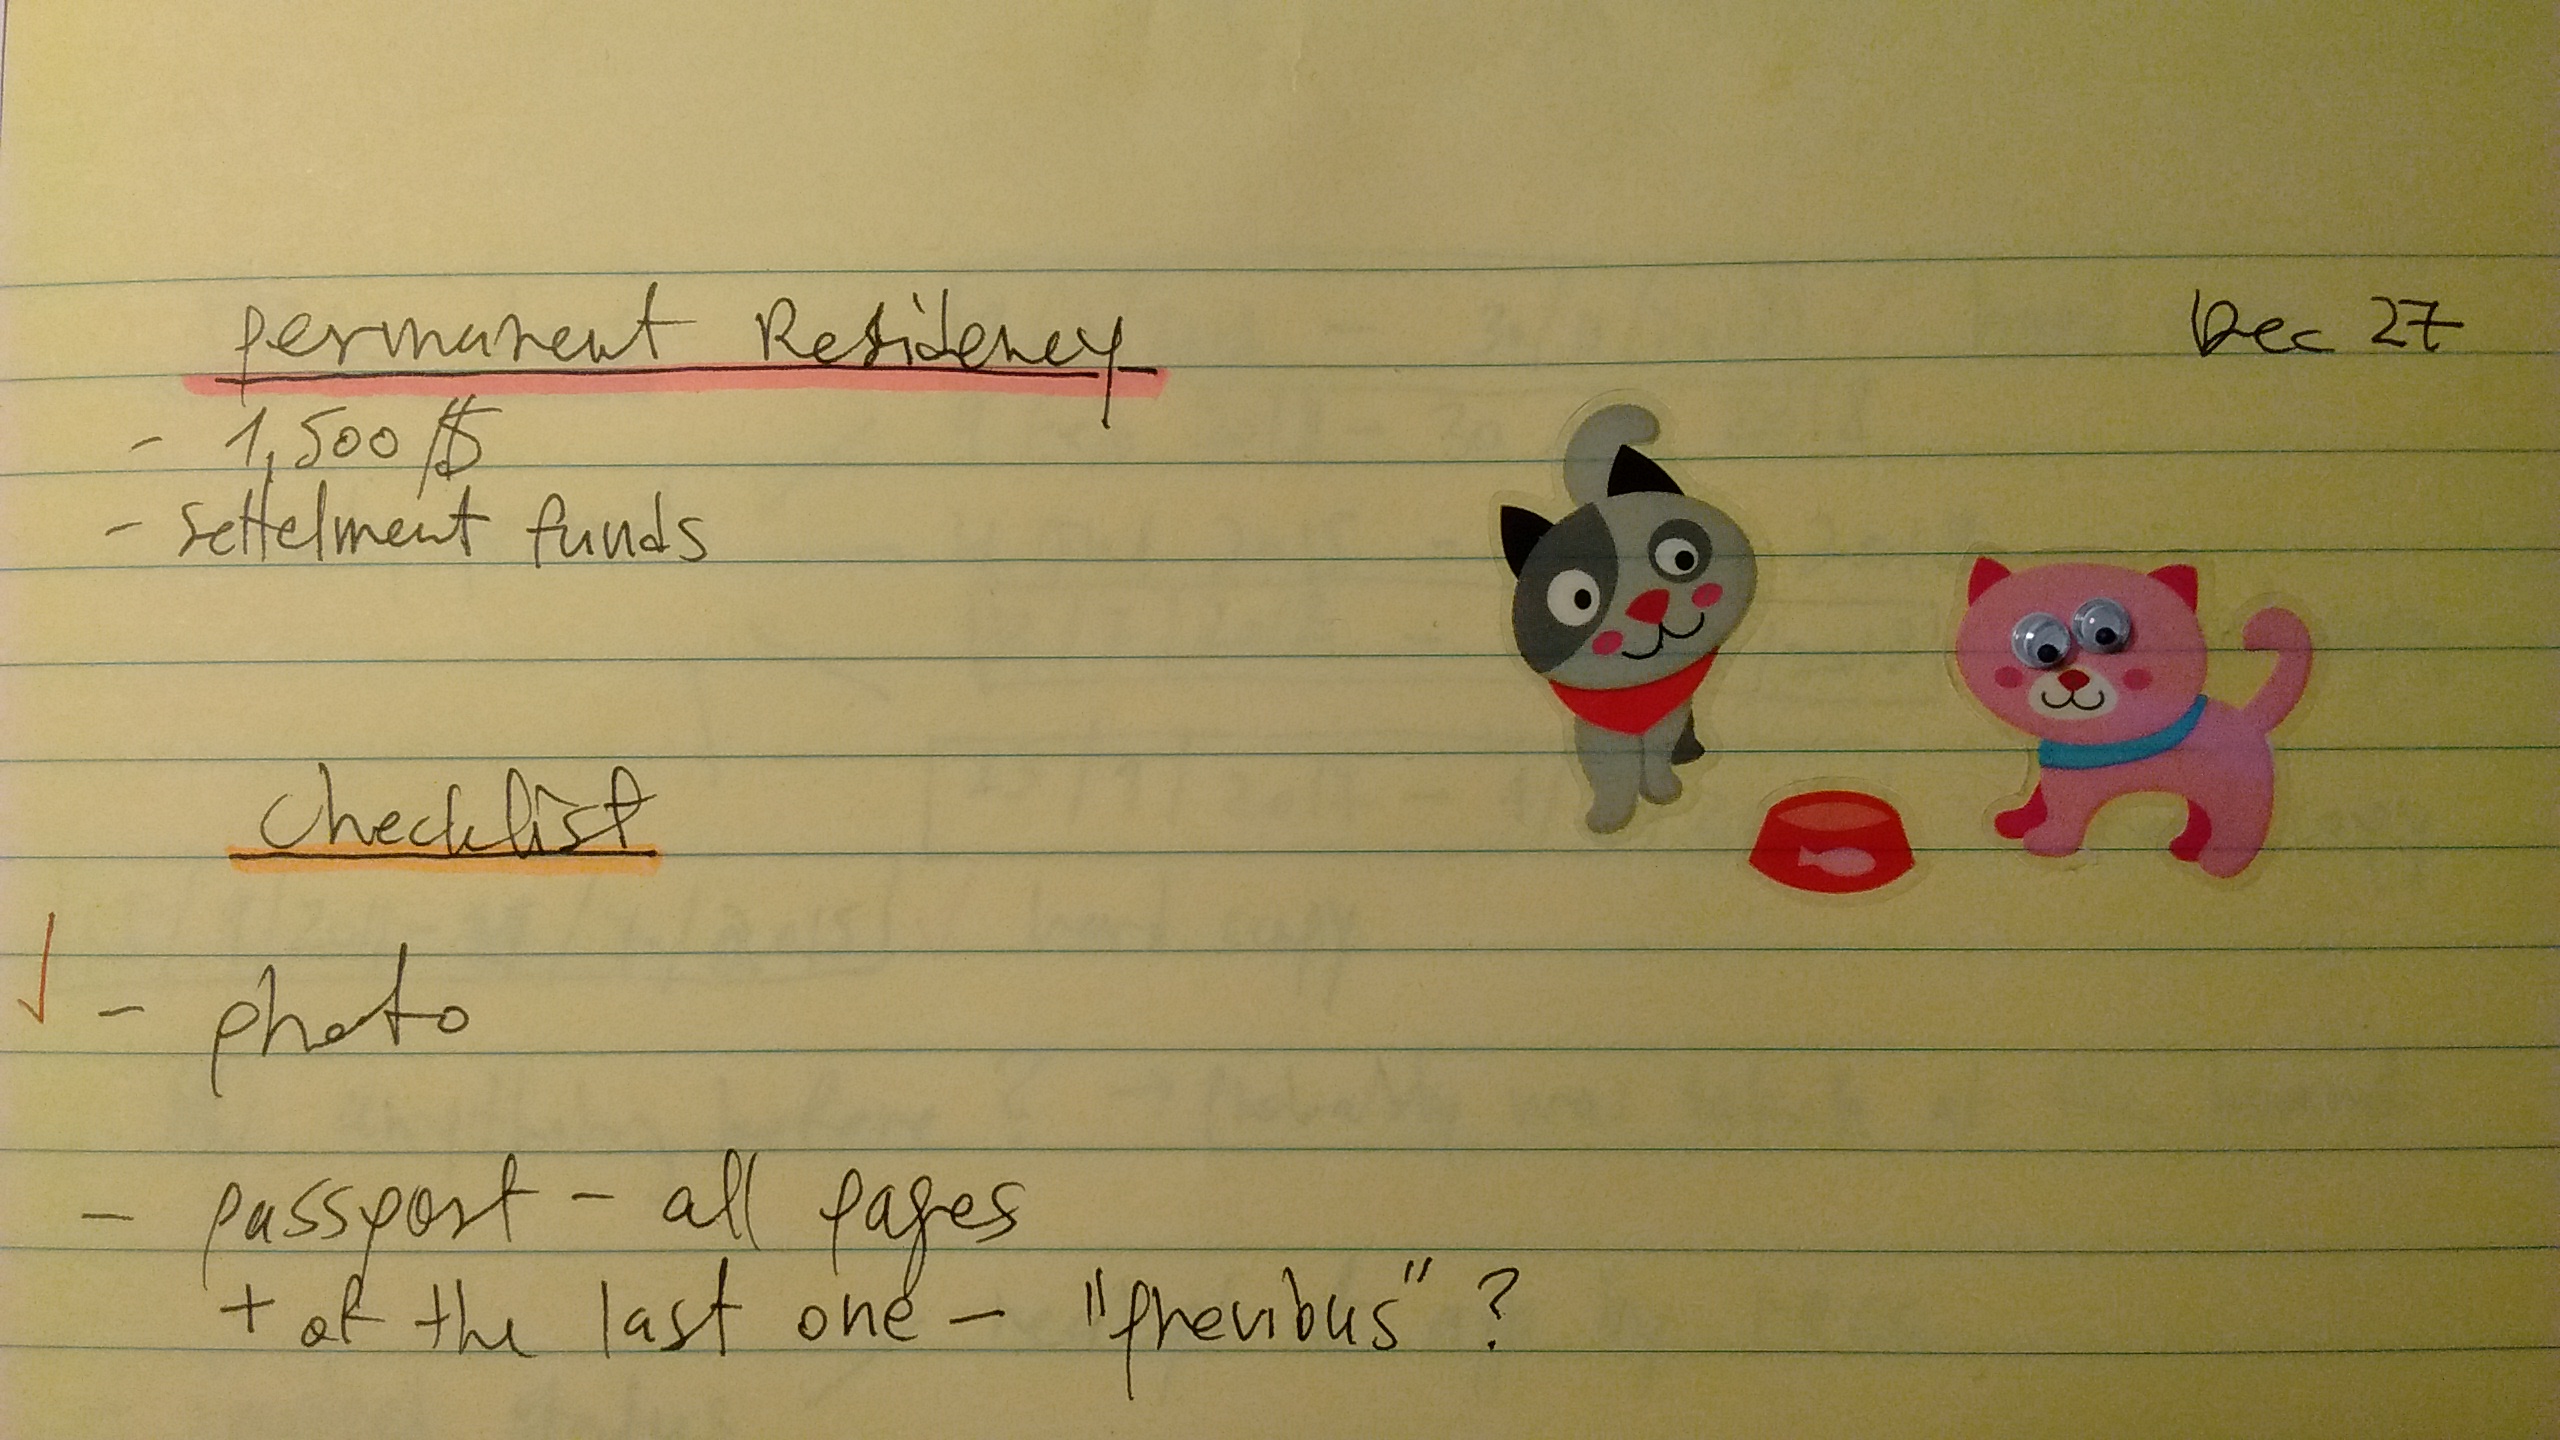 permanent Residency
Dec 27
- 1,500 $
- settelment funds
checklist
✓ - photo
- passport - all pages
+ of the last one - "previous" ?